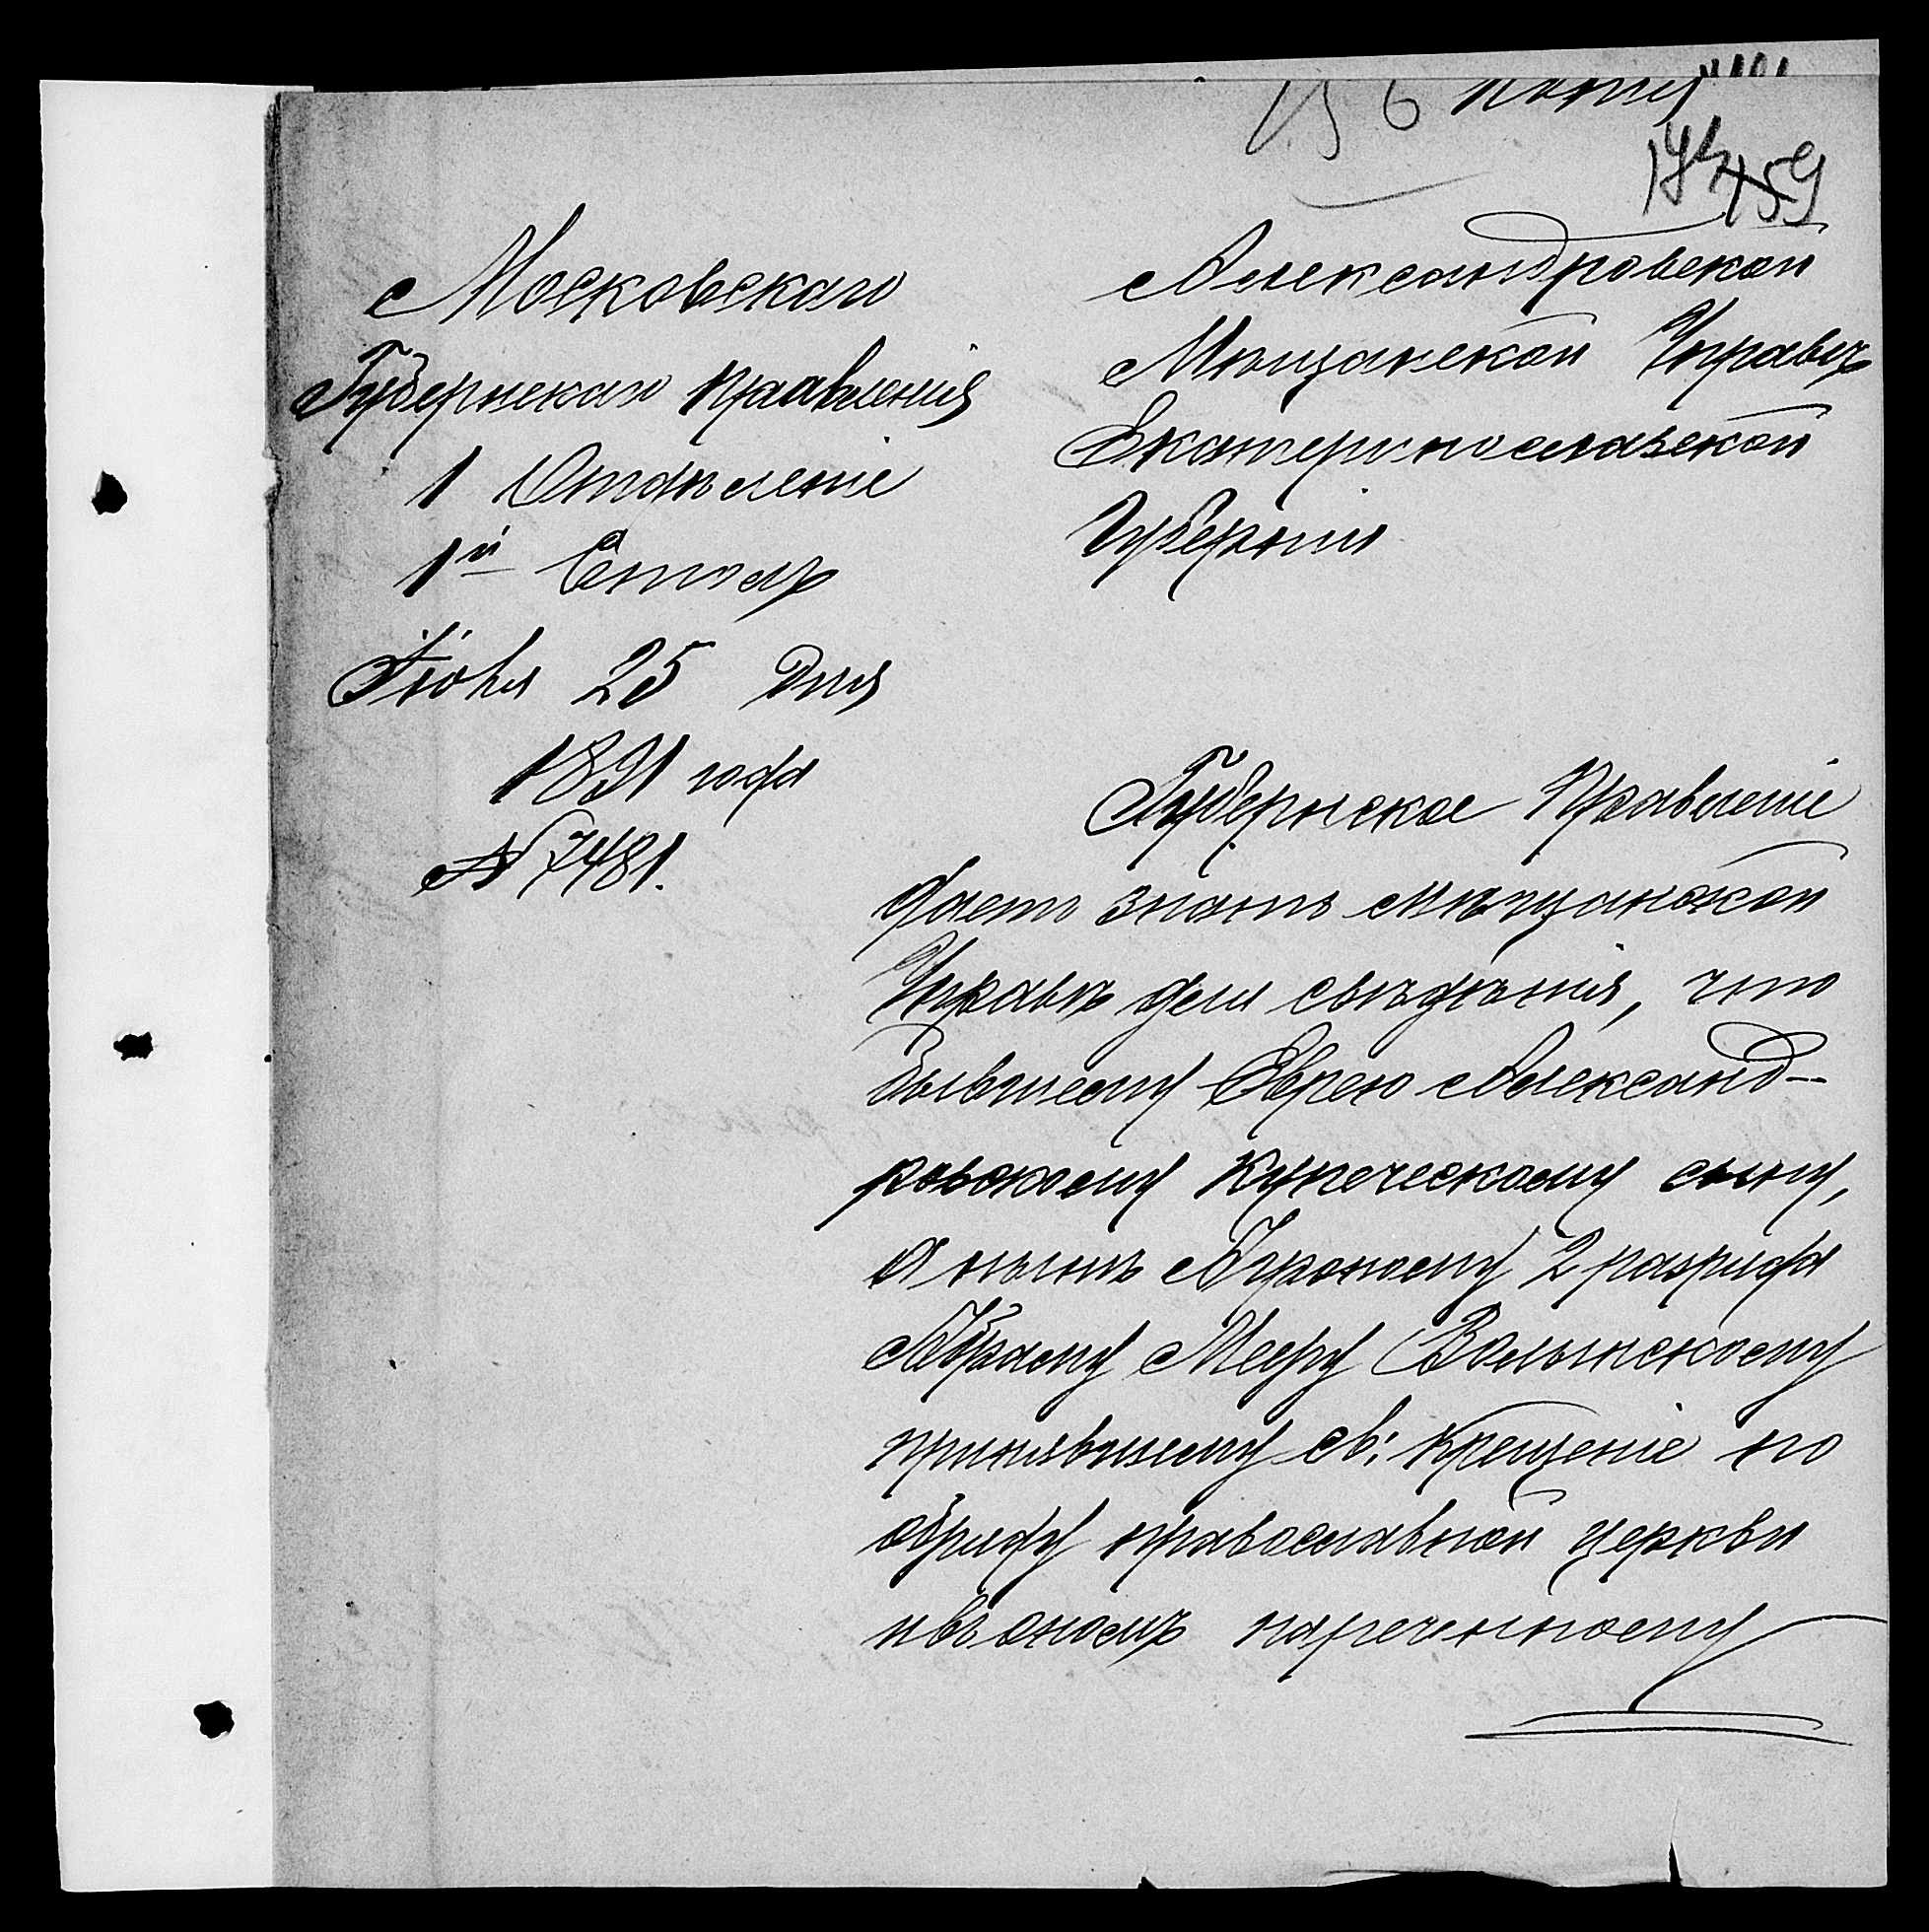 156 Копия
159
Московскаго
Губернскаго Правленія
1 Отдѣленіе
1й Столъ
Іюня 25 дня
1891 года
№ 7481.
Александровской
Мѣщанской Управѣ
Екатеринославской
Губерніи
Губернское Правленіе
даетъ знать мѣщанской
Управѣ для свѣдѣнія, что
бывшему Еврею Александ-
ровскому купеческому сыну,
а нынѣ Агроному 2 разряда
Абраму Мееру Волынскому
принявшему св: крещеніе по
обряду православной церкви
и въ ономъ нареченному